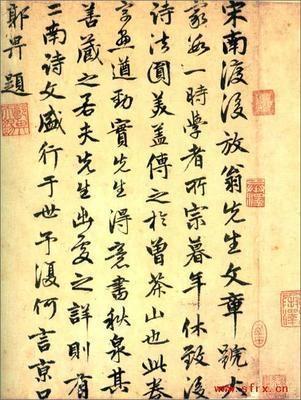 宋南渡後放翁先生文章號大
家為一時學者所宗暮年休致後
詩法圓美蓋傳之於曾茶山也此卷
字畫遒勁實先生得意書秋泉其
善藏之若夫先生出處之詳則有
二南詩文盛行于世予復何言京口
郭畀題
www.sfrx.cn